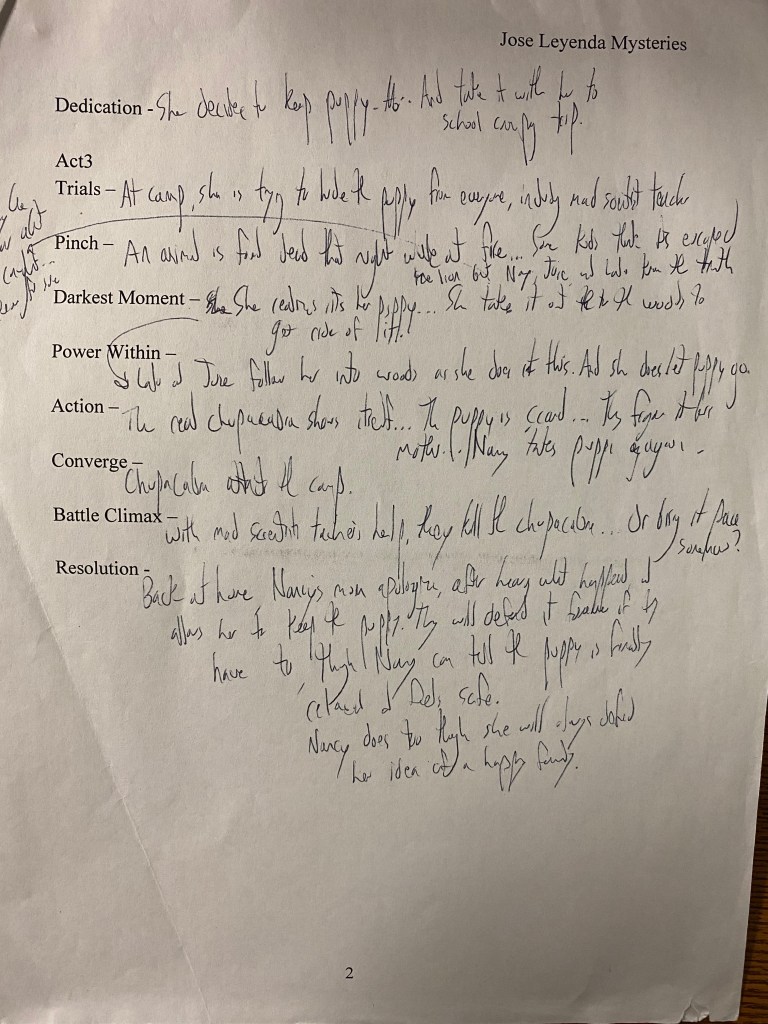 Jose Leyenda Mysteries
Dedication - She decides to keep puppy - And take it with her to
school camping trip.
Act3
Trials - At camp, she is trying to hide the puppy from everyone, including mad scientist teacher
Pinch - An animal is found dead that night while at fire... Some kids think its escaped
zoo lion but Nancy, Jose and Lalo know the truth
Darkest Moment - She realizes its her puppy... She takes it out to the woods to
get ride of it!
Power Within -
Lalo and Jose follow her into woods as she does this. And she does let puppy go.
Action - The real chupacabra shows itself... The puppy is scared... They figure it
mother. Nancy takes puppy again -
Converge -
Chupacabra attacks the camp.
Battle Climax - with mad scientists teacher's help, they kill the chupacabra... Or bring it peace
somehow?
Resolution -
Back at home, Nancy's mom apologizes, after hearing what happened and
allows her to keep the puppy. They will defend it if they
have to, though Nancy can tell the puppy is finally
relaxed and feels safe.
Nancy does too though she will always defend
her idea of a happy family.
2